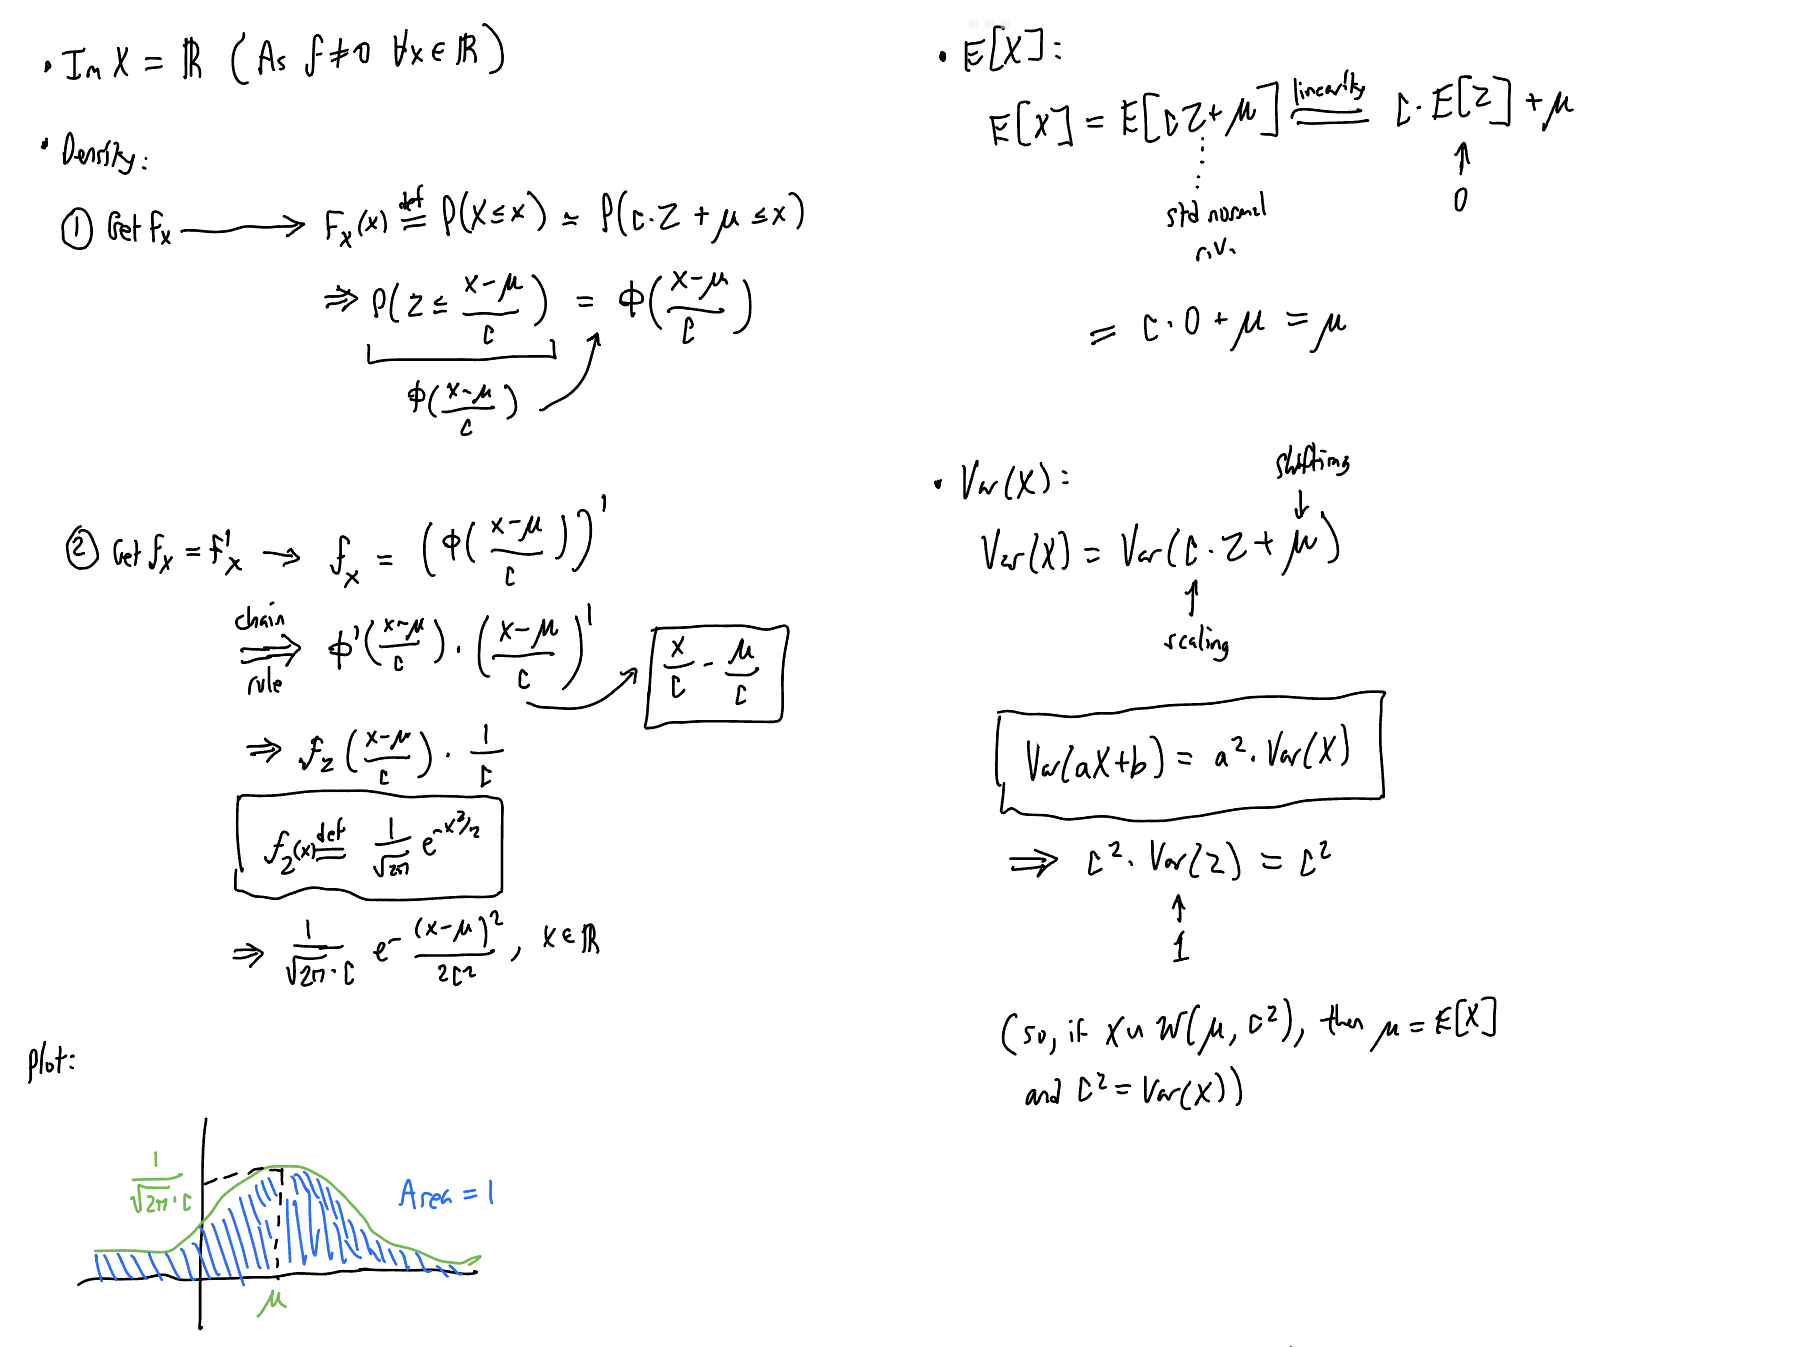 • Im X = ℝ (As f ≠ 0 ∀x ∈ ℝ)
• Density:
① Get F_X ⟶ F_X(x) ≝ P(X ≤ x) = P(c·Z + μ ≤ x)
⇒ P(Z ≤ (x-μ)/c) = Φ((x-μ)/c)
Φ((x-μ)/c)
② Get f_X = F'_X → f_X = (Φ((x-μ)/c))'
chain
⇒ Φ'((x-μ)/c) · ((x-μ)/c)'
rule
x/c - μ/c
⇒ f_Z((x-μ)/c) · 1/c
f_Z(x) ≝ 1/√2π e^(-x²/2)
⇒ 1/(√2π · c) e^- (x-μ)²/2c², x ∈ ℝ
Plot:
1/(√2π · c)
Area = 1
μ
• E[X]:
E[X] = E[cZ + μ] = c · E[Z] + μ
linearity
↑
0
std normal
r.v.
= c · 0 + μ = μ
• Var(X):
shifting
↓
Var(X) = Var(c · Z + μ)
↑
scaling
Var(aX+b) = a² · Var(X)
⇒ c² · Var(Z) = c²
↑
1
(so, if X ~ N(μ, c²), then μ = E[X]
and c² = Var(X))